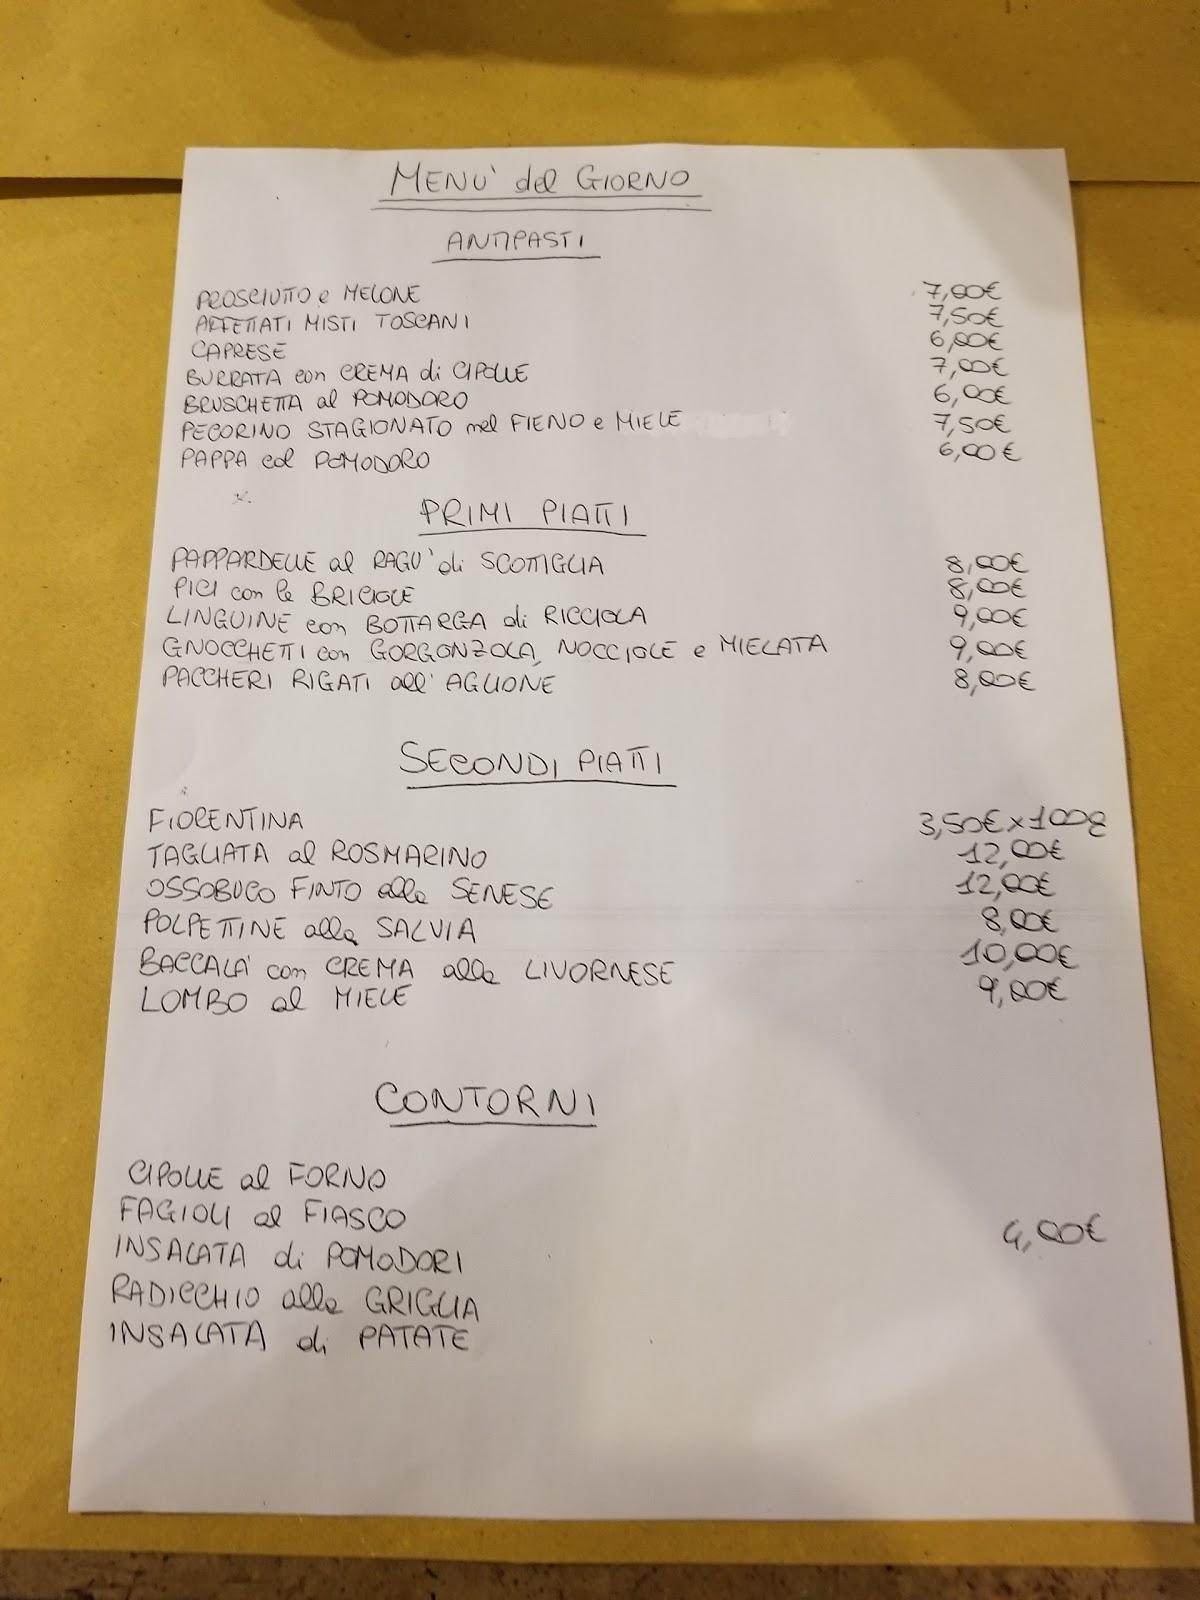 MENU' del GIORNO
ANTIPASTI
PROSCIUTTO e MELONE 7,00€
AFFETTATI MISTI TOSCANI 7,50€
CAPRESE 6,00€
BURRATA con CREMA di CIPOLLE 7,00€
BRUSCHETTA al POMODORO 6,00€
PECORINO STAGIONATO nel FIENO e MIELE 7,50€
PAPPA col POMODORO 6,00€
PRIMI PIATTI
PAPPARDELLE al RAGU' di SCOTTIGLIA 8,00€
PICI con le BRICIOLE 8,00€
LINGUINE con BOTTARGA di RICCIOLA 9,00€
GNOCCHETTI con GORGONZOLA, NOCCIOLE e MIELATA 9,00€
PACCHERI RIGATI all' AGLIONE 8,00€
SECONDI PIATTI
FIORENTINA 3,50€x100g
TAGLIATA al ROSMARINO 12,00€
OSSOBUCO FINTO alla SENESE 12,00€
POLPETTINE alla SALVIA 8,00€
BACCALA' con CREMA alla LIVORNESE 10,00€
LOMBO al MIELE 9,00€
CONTORNI
CIPOLLE al FORNO
FAGIOLI al FIASCO
INSALATA di POMODORI 4,00€
RADICCHIO alla GRIGLIA
INSALATA di PATATE